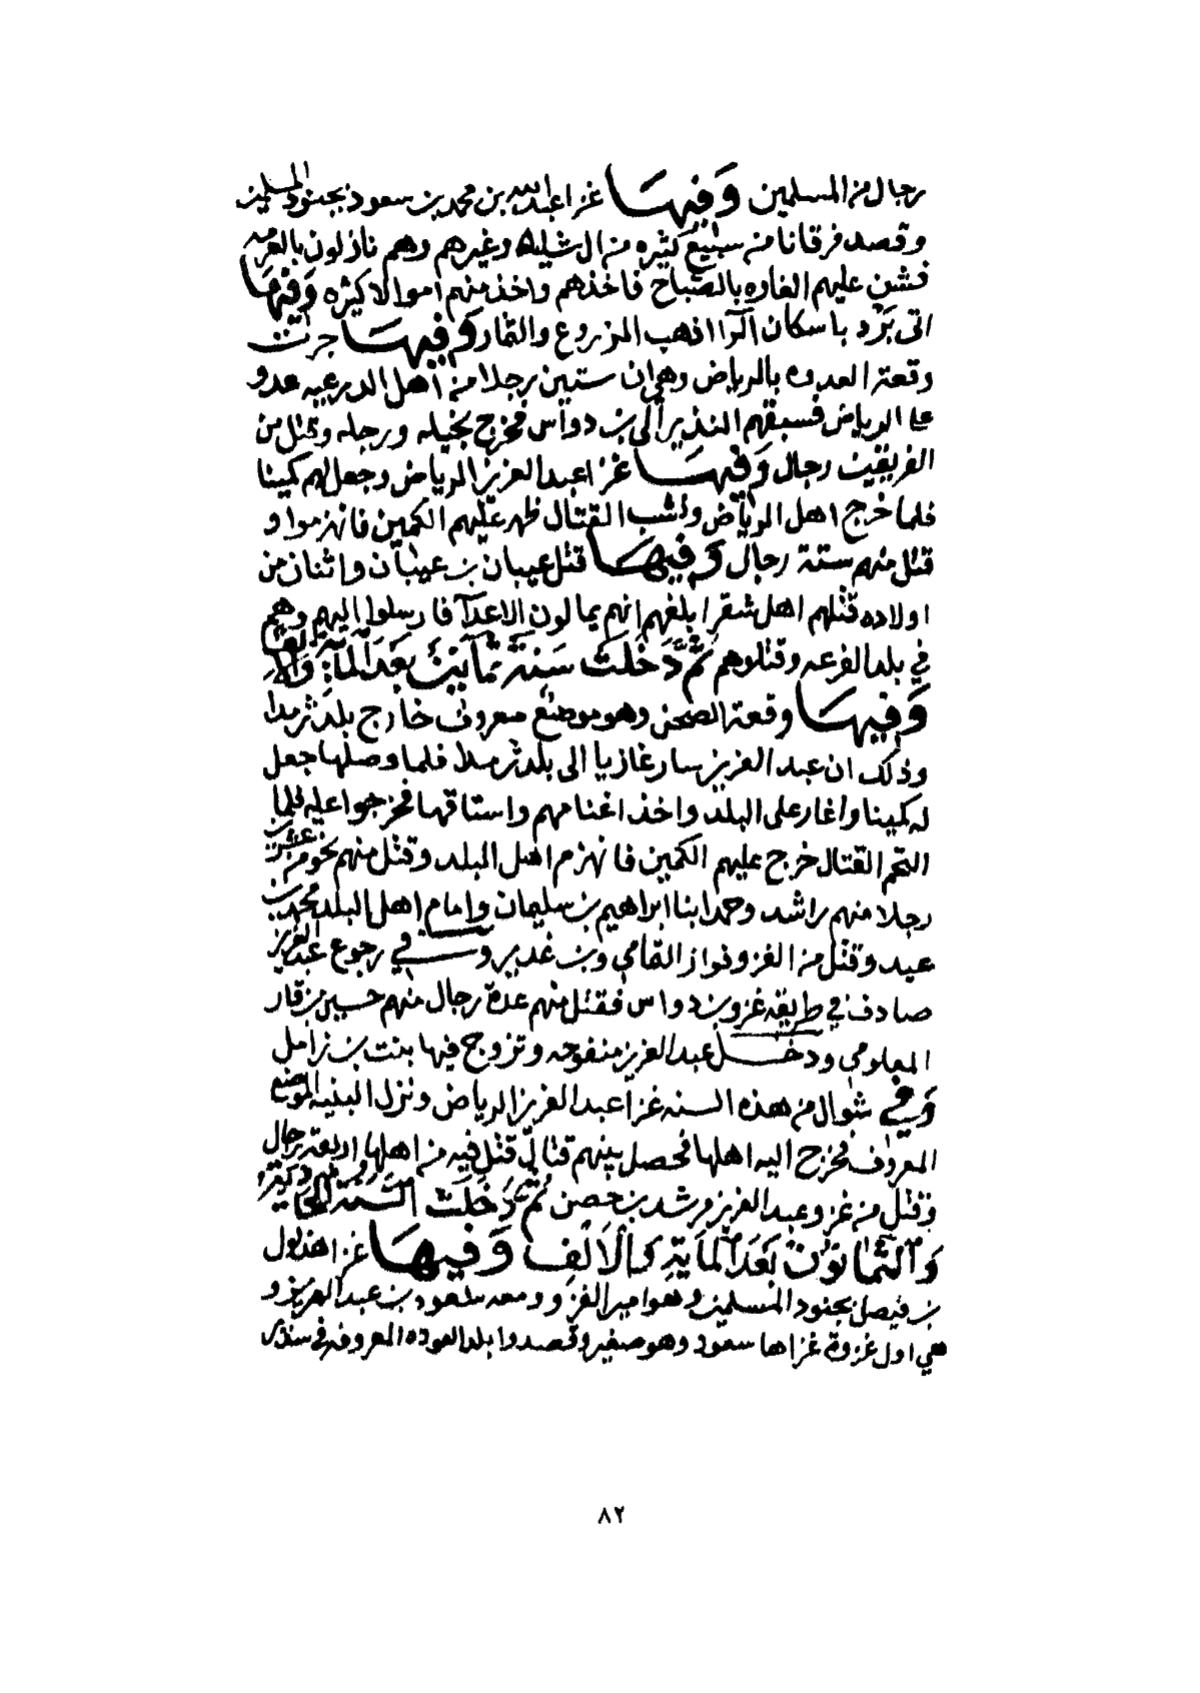 رجال من المسلمين وفيها غزا عبدالله بن محمد بن سعود بجنود المسلمين
وقصد فرقانا من سبيع كثيره من ال شليه وغيرهم وهم نازلون بالعرمه
فشن عليهم الغاره بالصباح فاخذهم واخذ منهم اموالا كثيره وفيها
اتى برد باسكان الرا اذهب المزروع والثمار وفيها جرت
وقعة العدوه بالرياض وهي ان ستين رجلا من اهل الدرعيه عدو
على الرياض فسبقهم النذير الى بن دواس فخرج بخيله ورجله وقتل من
الفريقين رجال وفيها غزا عبدالعزيز الرياض وجعل لهم كمينا
فلما خرج اهل الرياض ونشب القتال ظهر عليهم الكمين فانهزموا و
قتل منهم ستة رجال وفيها قتل عيبان بن عيبان واثنان من
اولاده قتلهم اهل شقرا بلغهم انهم يمالون الاعدآ فارسلوا اليهم وهم
في بلد الفرعه وقتلوهم ثم دخلت سنة ثمانين بعد الماية والالف
وفيها وقعة الصحن وهو موضع معروف خارج بلد ثرمدا
وذلك ان عبد العزيز سار غازيا الى بلد ثرمدا فلما وصلها جعل
له كمينا واغار على البلد واخذ اغنامهم واستاقها فخرجوا عليه فلما
التحم القتال خرج عليهم الكمين فانهزم اهل البلد وقتل منهم نحو من عشرين
رجلا منهم راشد وحمد ابنا ابراهيم بن سليمان وامام اهل البلد محمد بن
عيد وقتل من الغزو فواز القامي وبن غدير وفي رجوع عبدالعزيز
صادف في طريقه غزو بن دواس فقتل منهم عدة رجال منهم حسين بن قار
المعلومي ودخل عبدالعزيز منفوحه وتزوج فيها بنت بن زامل
وفي شوال من هذه السنه غزا عبدالعزيز الرياض ونزل البنيه الموضع
المعروف فخرج اليه اهلها فحصل بينهم قتال قتل فيه من اهلها اربعة رجال
وقتل من غزو عبدالعزيز مرشد بن حصن ثم دخلت السنة الحادية
والثمانون بعد الماية والالف وفيها غزا هذلول
بن فيصل بجنود المسلمين وهو امير الغزو ومعه سعود بن عبدالعزيز و
هي اول غزوة غزاها سعود وهو صغير وقصدوا بلد العوده المعروفه في سدير
٨٢